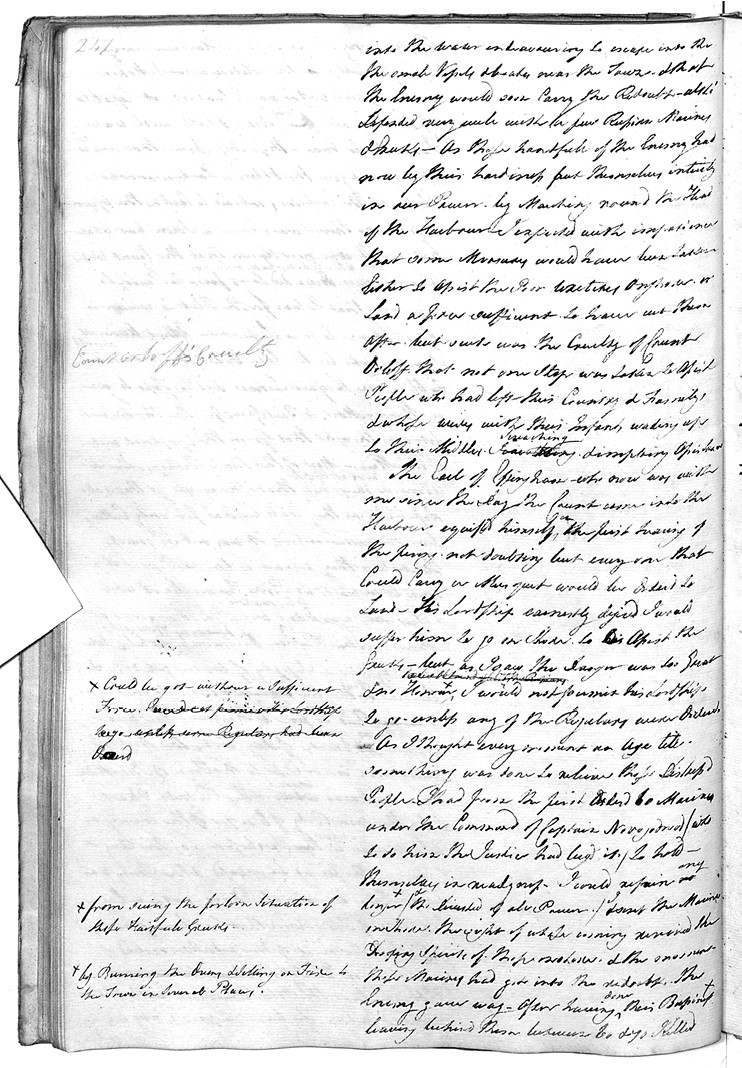 247
into the water endeavouring to escape into the
the small Vessels & boats near the Town. & that
the Enemy would soon Carry the Redoubt - altho'
defended very well with a few Russian Marines
& Greeks - As these handfull of the Enemy had
now by their hardiness put themselves intirely
in our Power. by Marching round the Head
of the Harbour I expected with impatience
that some Measures would have been taken
Either to Assist the Poor Wretches Onshore. or
Land a force sufficient to have cut them
off - but such was the Cruelty of Count
Orloff. that not one Step was taken to Assist
People who had left their Country & Familys
& whose wives with their Infants wading up
to their Middles. Sreaching imploring Assistance
Count Orloff's Cruelty
The Earl of Effingham - who now was with
me since the day the Count came into the
Harbour equiped himself on the first hearing of
the firing. not doubting but every one that
Could Carry a Musquet would be Orderd to
Land - His Lordship earnestly desired I would
suffer him to go on Shore. to Assist the
Greeks - but as I saw the danger was too Great
& no Honour + I would not permit his Lordship
to go. unless any of the Regulars were Orderd.
As I thought every moment an Age till
something was done to relieve these distress'd
People. I had from the first Orderd 60 Marines
under the Command of Captain
to do him the Justice had beg'd it) to hold -
themselves in readyness. I could refrain no any
longer + (tho' divested of all Power.) I sent the Marines
onshore. the sight of whose coming revived the
Drooping Spirits of those onshore. & the moment
these Marines had got into the redoubt. the
Enemy gave way - After having done their Business +
leaving behind them between 60 & 70 Killed
+ Could be got - without a Sufficient
Force.
+ from seeing the forlorn Situation of
these Faithfull Greeks.
+ by Burning the Quay & Setting on Fire to
the Town in Several Places.